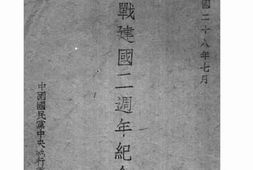 國二十八年七月
戰建國二週年紀
中國國民黨中央執行